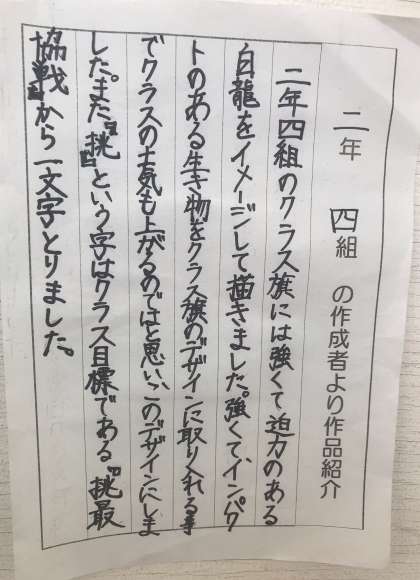 二年 四組 の作成者より作品紹介
二年四組のクラス旗には強くて迫力のある
白龍をイメージして描きました。強くて、インパク
トのある生き物をクラス旗のデザインに取り入れる事
でクラスの士気も上がるのではと思い、このデザインにしま
した。また『挑』という字はクラス目標である『挑最
協戦』から一文字とりました。